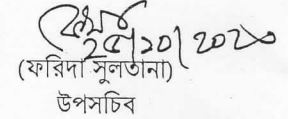 ২৫/১০/২০২০
(ফরিদা সুলতানা)
উপসচিব